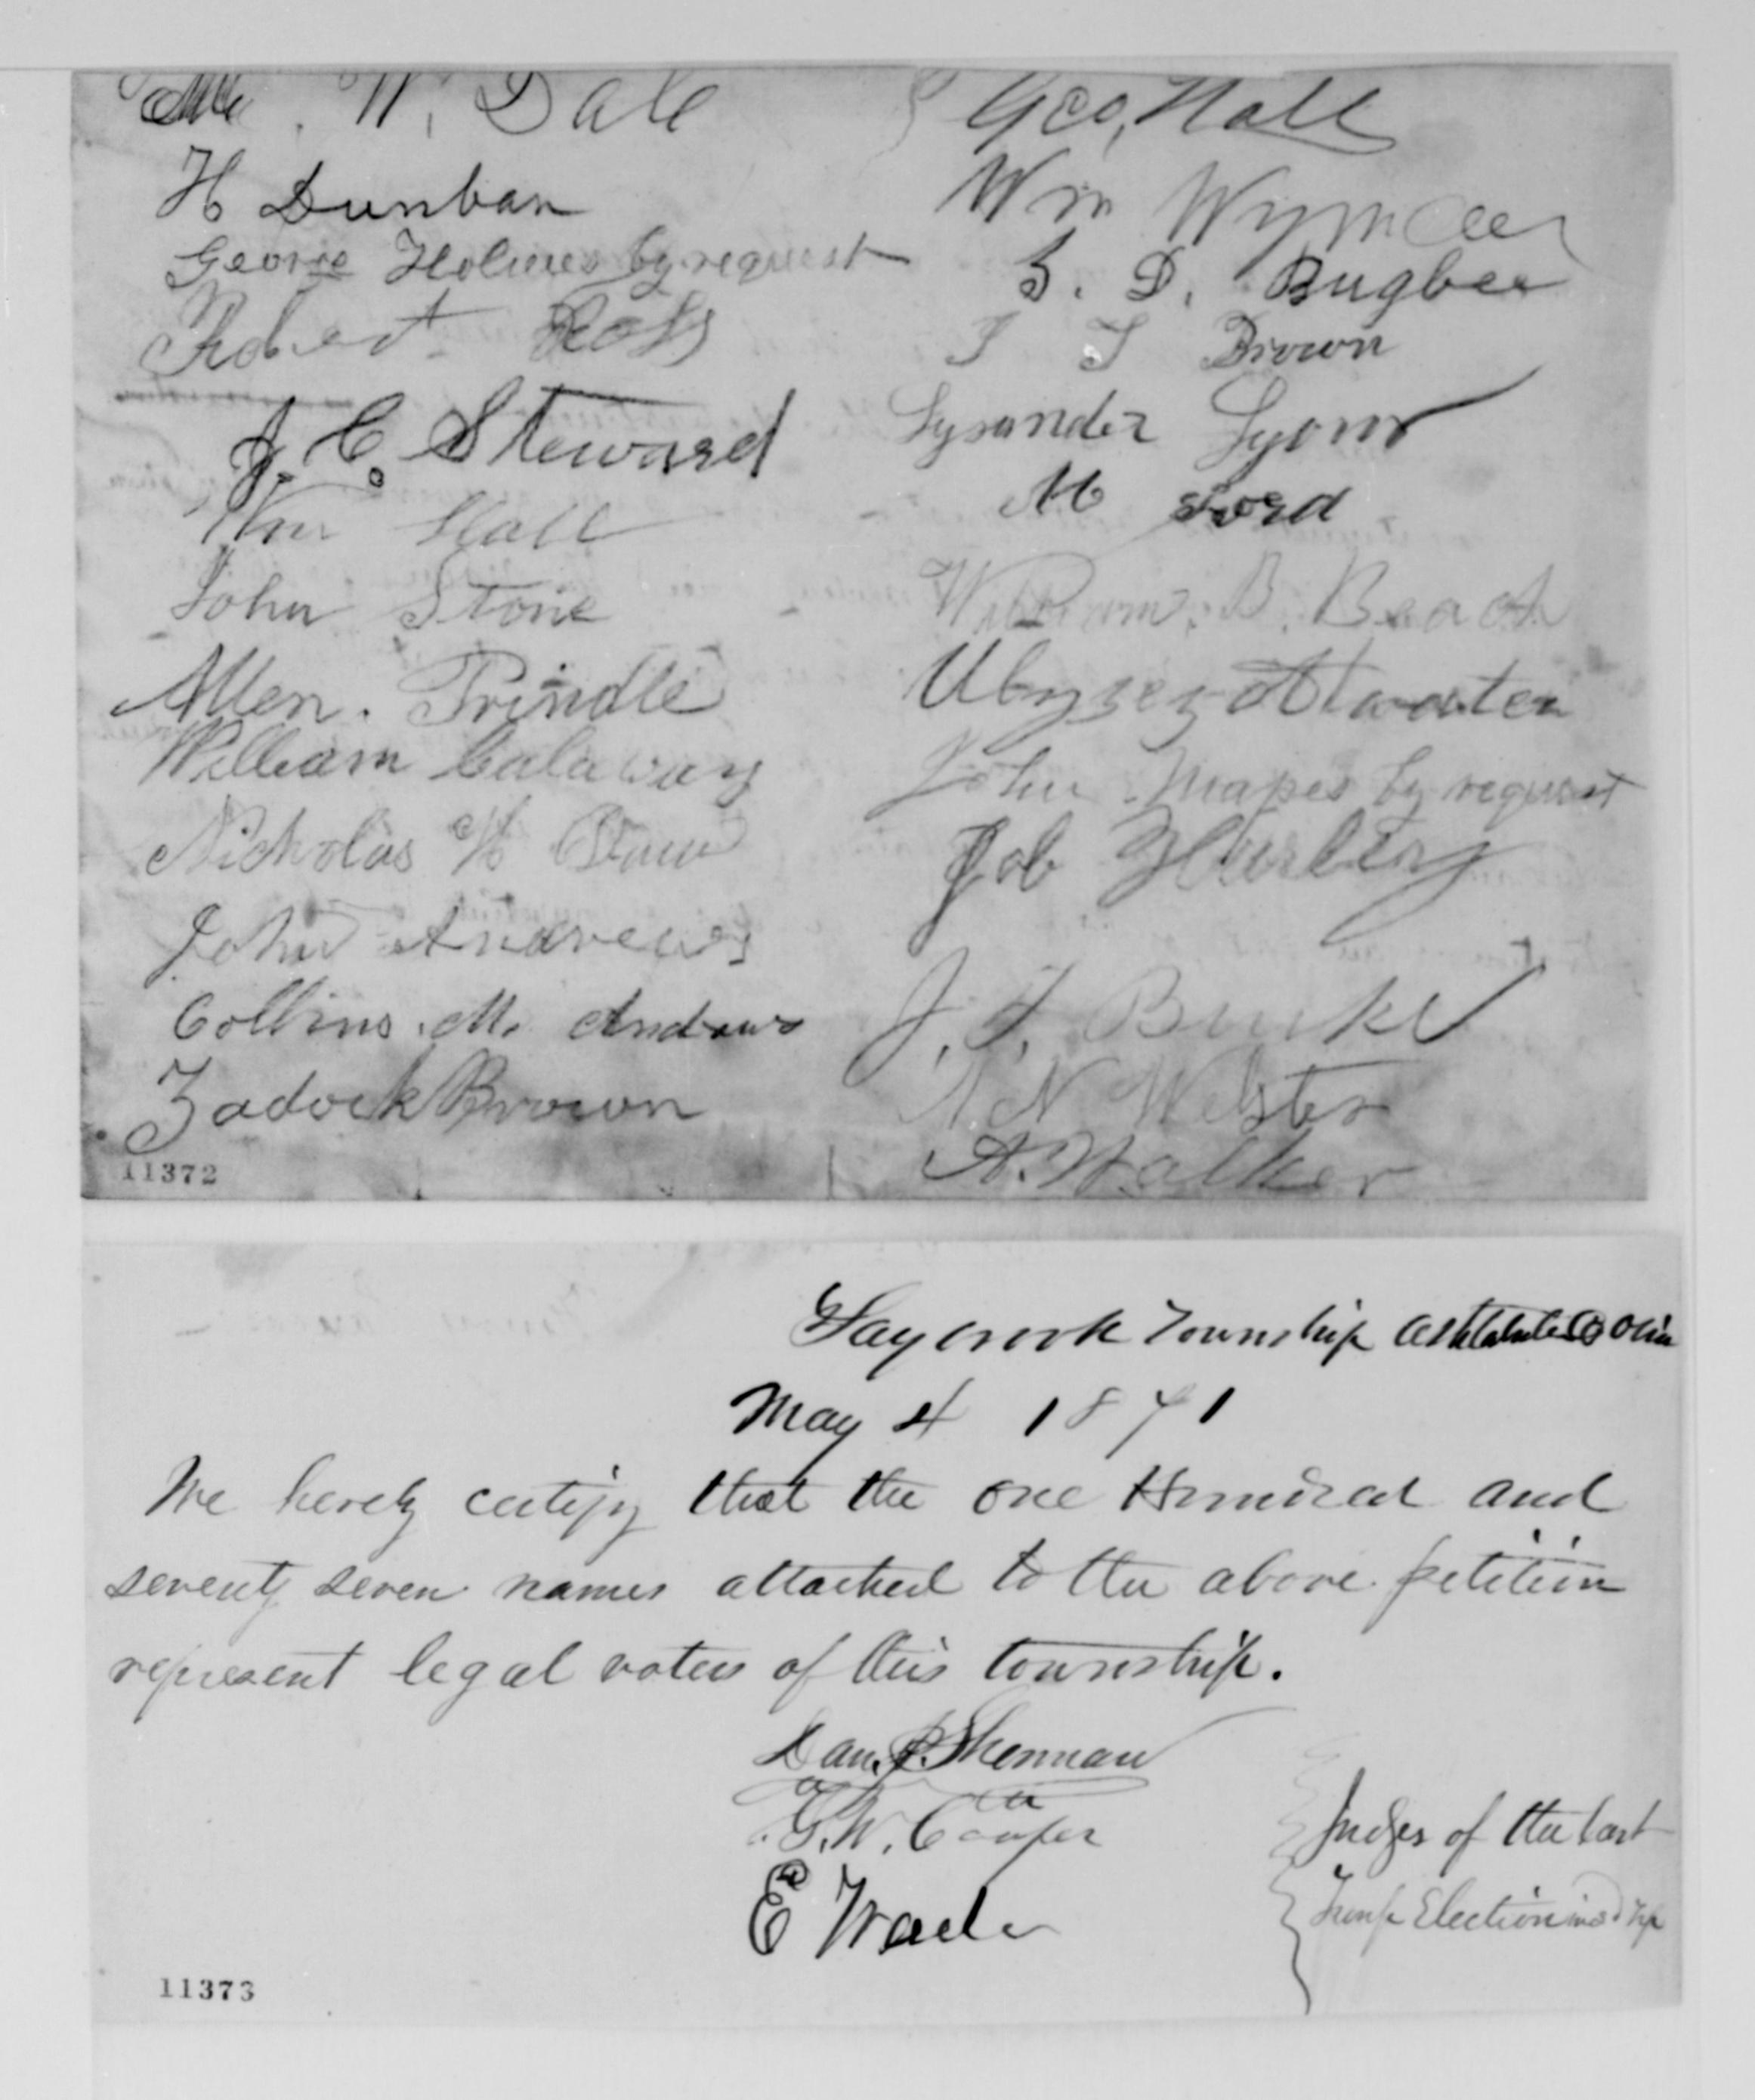 W. Dale
H Dunbar
George Holmes by request
Robert Ross
J. C. Steward
Wm Hall
John Stone
Allen. Prindle
William Calaway
Nicholas H
John Andrews
Collins. M. Andrews
Zadock Brown
11372
Geo, Hall
Wm
D. Bugbee
Brown
Lysander Lyons
M Ford
William. B. Beach
Ulyzez Atwater
John Mapes by request
Job
J.
N Webster
A. Walker
Saybrook Township Ashtabula Co Ohio
May 4 1871
We hereby certify that the one Hundred and
seventy seven names attached to the above petition
represent legal voters of this township.
Dan. Sherman
G. W. Cooper
E Wade
Judges of the last
Election
11373